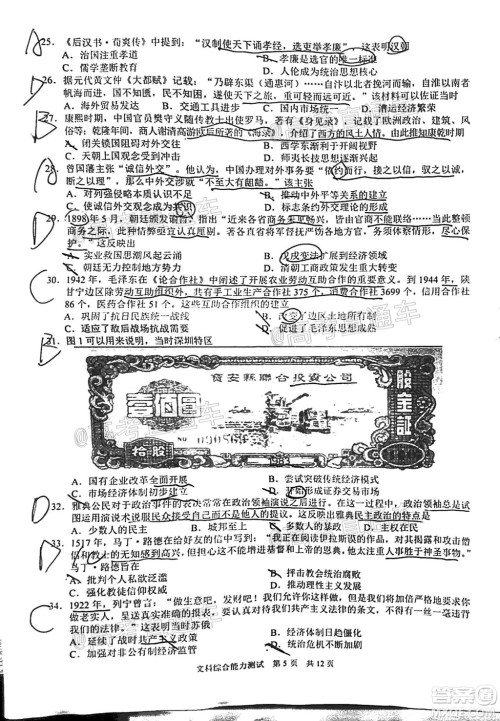 25. 《后汉书·荀爽传》中提到：“汉制使天下诵孝经，选吏举孝廉”，这表明汉朝
A. 治国注重孝道 B. 孝廉是选官的唯一标准
C. 儒学垄断教育 D. 儒家成为统治思想核心
26. 据元代黄文仲《大都赋》记载：“乃辟东渠（通惠河）……自汴以北挽河而输，自淮以南者
帆海而进，国不知匮，民不知疲，遂使天下之旅，重可轻而远可近。”该材料可以佐证当时
A. 海外贸易发达 B. 交通工具革新 C. 国内市场统一 D. 漕运经济繁荣
27. 康熙时期，中国官员樊守义随传教士出使罗马，著有《身见录》，记载欧洲政治、建筑、风
俗等；乾隆年间，商人谢清高游欧后所著的《海录》，介绍了西方的风土人情。由此推知康乾时期
A. 闭关锁国阻碍对外交往 B. 西学东渐潮流不断加强
C. 天朝上国观念受到冲击 D. 时人对外部世界有所了解
28. 曾国藩主张“诚信外交”。他认为，中国办理对外事务要“信约而行”，“以微小之利，
断之以理”，“不至有大龃龉”。该主张
A. 对列强侵略本质认识不足 B. 推动中外平等关系的建立
C. 是对传统华夷观念的突破 D. 标志着近代外交理论的形成
29. 1898年5月，朝廷颁发谕旨：“近来各省商务未见畅兴，皆由官商不能联络……当此整顿
商务之际，此种情弊亟宜认真厘剔。著各直省将军督抚严饬各该地方官，务须体察商情，尽心保
护。”这反映出
A. 实业救国思潮风起云涌 B. 戊戌变法扩展到经济领域
C. 朝廷无力控制地方势力 D. 工商政策发生重大变革
30. 1942年，毛泽东在《论合作社》中阐述了开展农业劳动互助组织的重要性。到1944年，陕
甘宁边区除劳动互助组织外，共有手工业生产合作社375个，消费合作社3699个，信用合作社
86个，医药合作社51个。这些互助合作组织
A. 巩固了抗日民族统一战线 B. 改变了边区土地所有制
C. 适应了敌后战场抗战需要 D. 促进了毛泽东思想的成熟
31. 图1可以用来说明，当时深圳特区
宝安县联合投资公司
壹佰圆
股金证
拾股
1983
A. 国有企业改革全面开展 B. 尝试突破传统经济模式
C. 市场经济体制初步建立 D. 开始形成证券交易市场
32. 雅典公民对于政治事件的表决常常在政治领袖演说之后立即进行，政治领袖总是试
图运用演说术说服民众接受自己而不是他人的提议。由此可见，雅典民主政治的特点是
A. 少数人的民主 B. 城邦至上 C. 多数人的暴政 D. 直接民主
33. 1517年，马丁·路德在给好友的信中写道：“我正在阅读伊拉斯谟的作品，他对无知的教会
僧侣和教士的无情揭露让我感到高兴，但是他对基督及上帝的恩典关注太少，他重人事胜于神圣事物。”
马丁·路德旨在
A. 批判个人私欲泛滥 B. 抨击教会世俗腐败
C. 强化教徒信仰权威 D. 倡导信仰得救理论
34. 1922年，列宁曾言：“做生意吧，发财吧！我们允许你这样做，但是我们将加倍严格地要求
你做老实人，呈送真实准确的报表，要认真对待我们共产主义法律的条文，不得有一丝一毫违背
我们的法律。”表明当时
A. 中止了共产主义政策 B. 加强对经济发展的引导
C. 自由市场经济泛滥 D. 统治危机不断加剧
文科综合能力测试 第5页 共12页